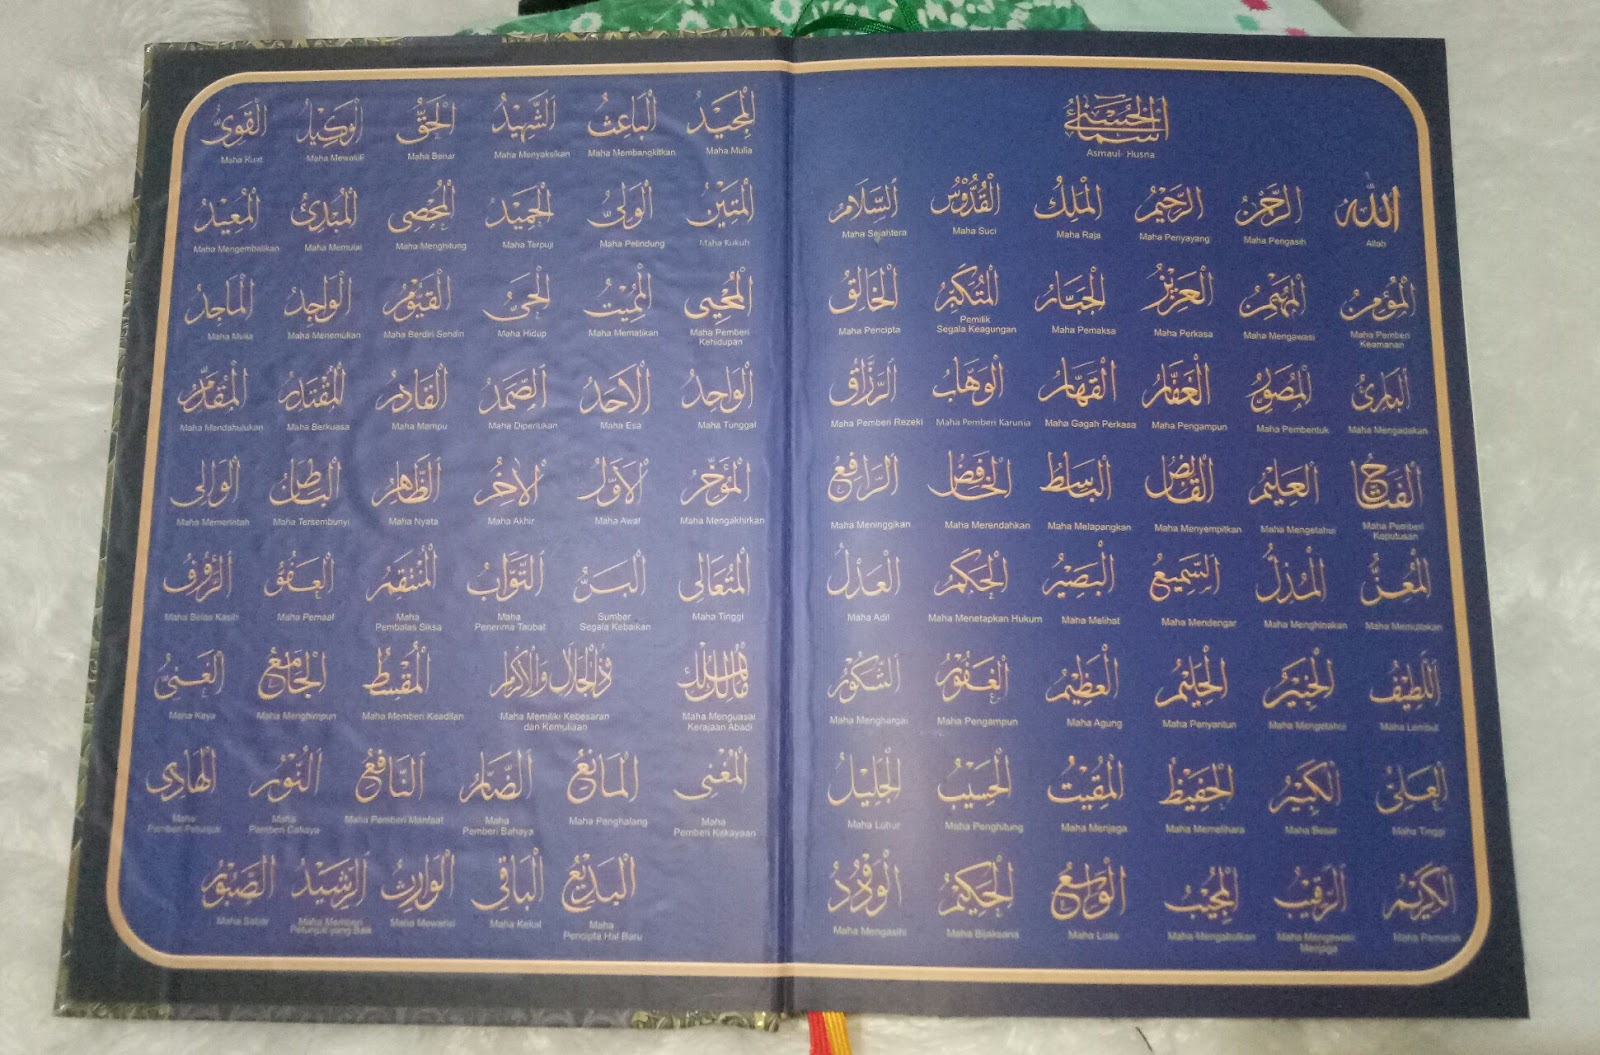 اسماء الحسنى
Asmaul- Husna
الله
Allah
الرحمن
Maha Pengasih
الرحيم
Maha Penyayang
الملك
Maha Raja
القدوس
Maha Suci
السلام
Maha Sejahtera
المؤمن
Maha Pemberi
Keamanan
المهيمن
Maha Mengawasi
العزيز
Maha Perkasa
الجبار
Maha Pemaksa
المتكبر
Pemilik
Segala Keagungan
الخالق
Maha Pencipta
البارئ
Maha Mengadakan
المصور
Maha Pembentuk
الغفار
Maha Pengampun
القهار
Maha Gagah Perkasa
الوهاب
Maha Pemberi Karunia
الرزاق
Maha Pemberi Rezeki
الفتاح
Maha Pemberi
Keputusan
العليم
Maha Mengetahui
القابض
Maha Menyempitkan
الباسط
Maha Melapangkan
الخافض
Maha Merendahkan
الرافع
Maha Meninggikan
المعز
Maha Memuliakan
المذل
Maha Menghinakan
السميع
Maha Mendengar
البصير
Maha Melihat
الحكم
Maha Menetapkan Hukum
العدل
Maha Adil
اللطيف
Maha Lembut
الخبير
Maha Mengetahui
الحليم
Maha Penyantun
العظيم
Maha Agung
الغفور
Maha Pengampun
الشكور
Maha Menghargai
العلي
Maha Tinggi
الكبير
Maha Besar
الحفيظ
Maha Memelihara
المقيت
Maha Menjaga
الحسيب
Maha Penghitung
الجليل
Maha Luhur
الكريم
Maha Pemurah
الرقيب
Maha Mengawasi
Menjaga
المجيب
Maha Mengabulkan
الواسع
Maha Luas
الحكيم
Maha Bijaksana
الودود
Maha Mengasihi
المجيد
Maha Mulia
الباعث
Maha Membangkitkan
الشهيد
Maha Menyaksikan
الحق
Maha Benar
الوكيل
Maha Mewakili
القوي
Maha Kuat
المتين
Maha Kukuh
الولي
Maha Pelindung
الحميد
Maha Terpuji
المحصي
Maha Menghitung
المبدئ
Maha Memulai
المعيد
Maha Mengembalikan
المحيي
Maha Pemberi
Kehidupan
المميت
Maha Mematikan
الحي
Maha Hidup
القيوم
Maha Berdiri Sendiri
الواجد
Maha Menemukan
الماجد
Maha Mulia
الواحد
Maha Tunggal
الاحد
Maha Esa
الصمد
Maha Diperlukan
القادر
Maha Mampu
المقتدر
Maha Berkuasa
المقدم
Maha Mendahulukan
المؤخر
Maha Mengakhirkan
الاول
Maha Awal
الاخر
Maha Akhir
الظاهر
Maha Nyata
الباطن
Maha Tersembunyi
الوالي
Maha Memerintah
المتعالى
Maha Tinggi
البر
Sumber
Segala Kebaikan
التواب
Maha
Penerima Taubat
المنتقم
Maha
Pembalas Siksa
العفو
Maha Pemaaf
الرؤوف
Maha Belas Kasih
مالك الملك
Maha Menguasai
Kerajaan Abadi
ذوالجلال والاكرام
Maha Memiliki Kebesaran
dan Kemuliaan
المقسط
Maha Memberi Keadilan
الجامع
Maha Menghimpun
الغني
Maha Kaya
المغني
Maha
Pemberi Kekayaan
المانع
Maha Penghalang
الضار
Maha
Pemberi Bahaya
النافع
Maha Pemberi Manfaat
النور
Maha
Pemberi Cahaya
الهادى
Maha
Pemberi Petunjuk
البديع
Maha
Pencipta Hal Baru
الباقي
Maha Kekal
الوارث
Maha Mewarisi
الرشيد
Maha Memberi
Petunjuk yang Baik
الصبور
Maha Sabar